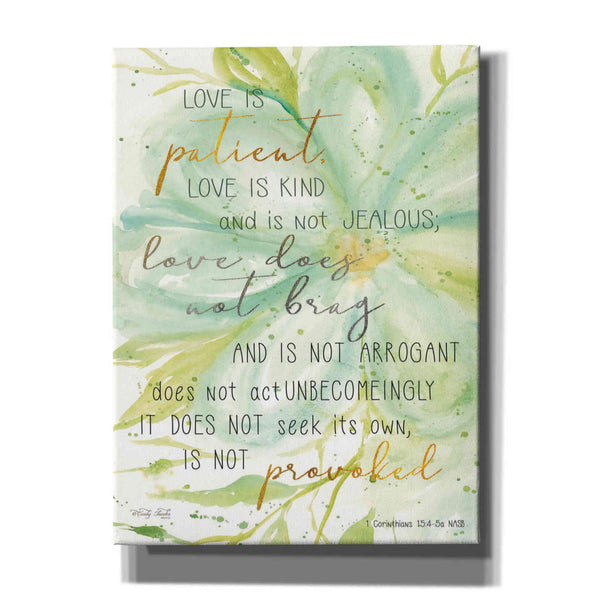 LOVE IS
patient,
LOVE IS KIND
and is not JEALOUS;
love does
not brag
AND IS NOT ARROGANT
does not act UNBECOMEINGLY
IT DOES NOT seek its own,
IS NOT provoked
1 Corinthians 15:4-5a NASB
©Cindy Jacobs